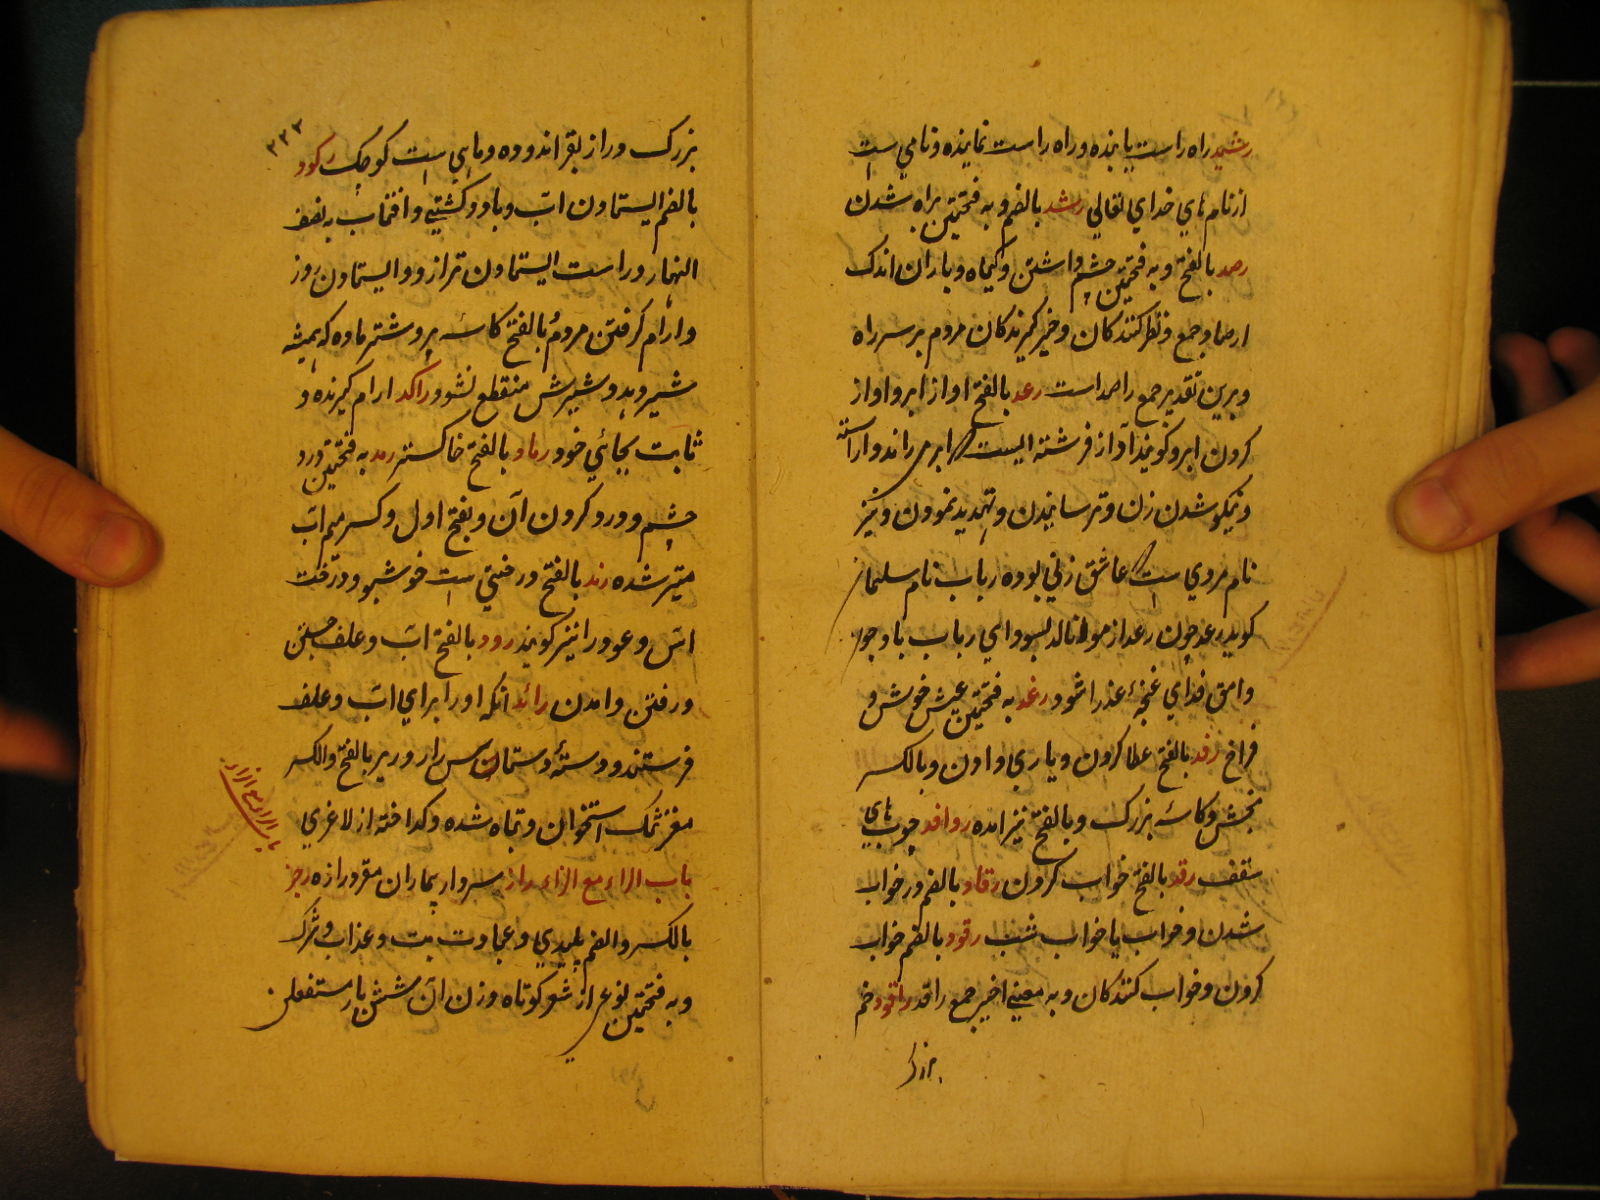 رشید راه راست یابنده و راه راست نماینده و نامی است
از نام های خدای تعالی رشد بالضم و به فتحتین براه شدن
رصد بالفتح و به فتحتین چشم داشتن و کیاه و باران اندک
ارصاد جمع و نظر کنندکان و خبر کیرندکان مردم بر سر راه
و برین تقدیر جمع راصد است رعد بالفتح اواز ابر و اواز
کردن ابر و کویند آواز فرشته ایست که ابر می راند و اراسته
و نیکو شدن زن و ترسانیدن و تهدید نمودن و نیز
نام مردی است که عاشق زنی بوده رباب نام سلمان
کوید رعد چون رعد از هوا نالد بسودای رباب باد چون
وامق فدای غنچهٔ عذرا شود رغد به فتحتین عیش خوش و
فراخ رفد بالفتح عطا کردن و یاری دادن و بالکسر
بخش و کاسهٔ بزرک و بالفتح نیز امده روافد چوب های
سقف رقد بالفتح خواب کردن رقاد بالضم در خواب
شدن و خواب یا خواب شب رقود بالضم خواب
کردن و خواب کنندکان و به معنی اخیر جمع راقد راقود خم
بزرک
۲۲۳
بزرک دراز بقر اندوده و ماهی است کوچک رکود
بالضم ایستادن اب و باد و کشتی و افتاب به نصف
النهار و راست ایستادن ترازو و ایستادن روز
و ارام کرفتن مردم و بالفتح کاسهٔ پر و شتر ماده که همیشه
شیر دهد و شیرش منقطع نشود راکد ارام کیرنده و
ثابت بجائی خود رماد بالفتح خاکستر رمد به فتحتین درد
چشم و درد کردن آن و بفتح اول و کسر میم اب
متغیر شده رند بالفتح درختی است خوشبو و درخت
اس و عود را نیز کویند رود بالفتح اب و علف جستن
و رفتن و امدن رائد انکه او را برای اب و علف
فرستند و دستهٔ دستاس رار و ریر بالفتح و الکسر
مغز تنک استخوان و تباه شده و کداخته از لاغری
باب الراء مع الزاء راز سردار بیماران مقرر رازه رجز
بالکسر و الضم پلیدی و عبادت بت و عذاب و شرک
و به فتحتین نوعی از شعر کوتاه وزن ان شش بار مستفعلن
باب الراء مع الزاء